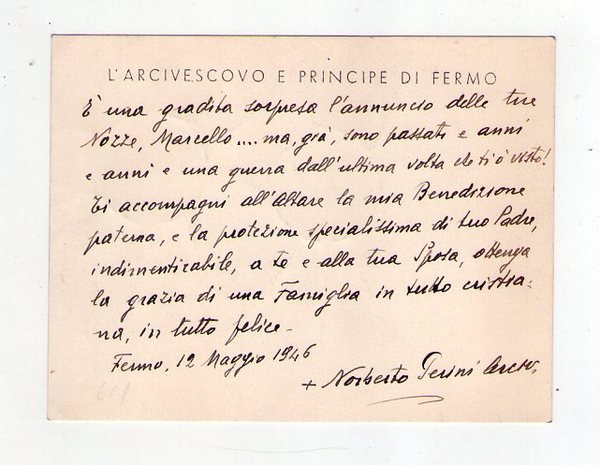 L'ARCIVESCOVO E PRINCIPE DI FERMO
È una gradita sorpresa l'annuncio delle tue
Nozze, Marcello.... ma, già, sono passati e anni
e anni e una guerra dall'ultima volta che ti ò visto!
Ti accompagni all'Altare la mia Benedizione
paterna, e la protezione specialissima di tuo Padre,
indimenticabile, a te e alla tua Sposa, ottenga
la grazia di una Famiglia in tutto cristia-
na, in tutto felice-
Fermo, 12 Maggio 1946
+ Norberto Perini Arciv.